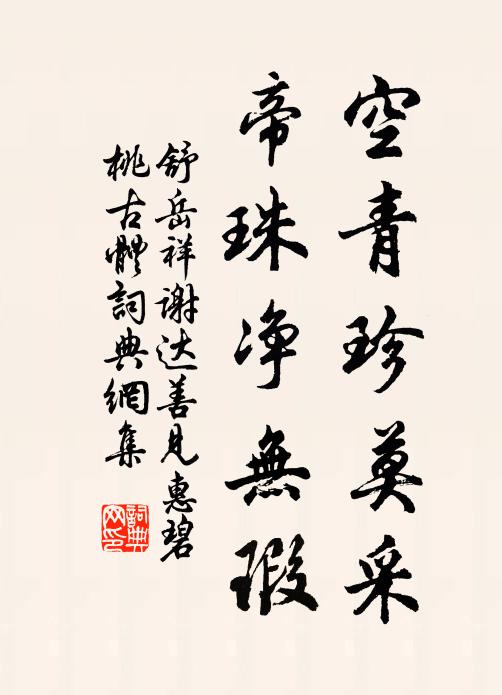 空青珍莫采
帝珠净無瑕
舒岳祥谢达善見惠碧
桃古體詞典網集
詞典
网印